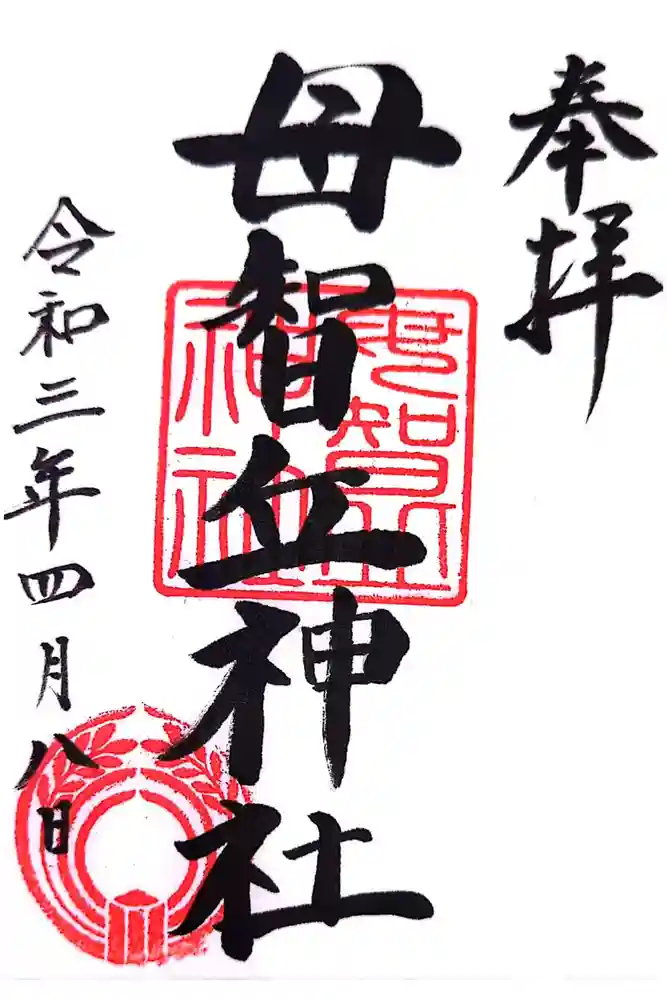 奉拝
母智丘神社
母智丘
神社
令和三年四月八日